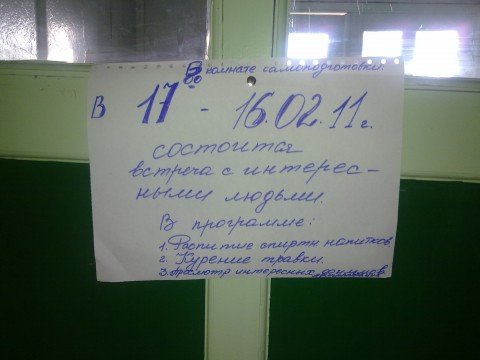 В комнате самоподготовки.
В 17 00 - 16.02.11 г.
состоится
встреча с интерес-
ными людьми.
В программе:
1. Распитие спиртн напитков
2. Курение травки.
3. Просмотр интересных